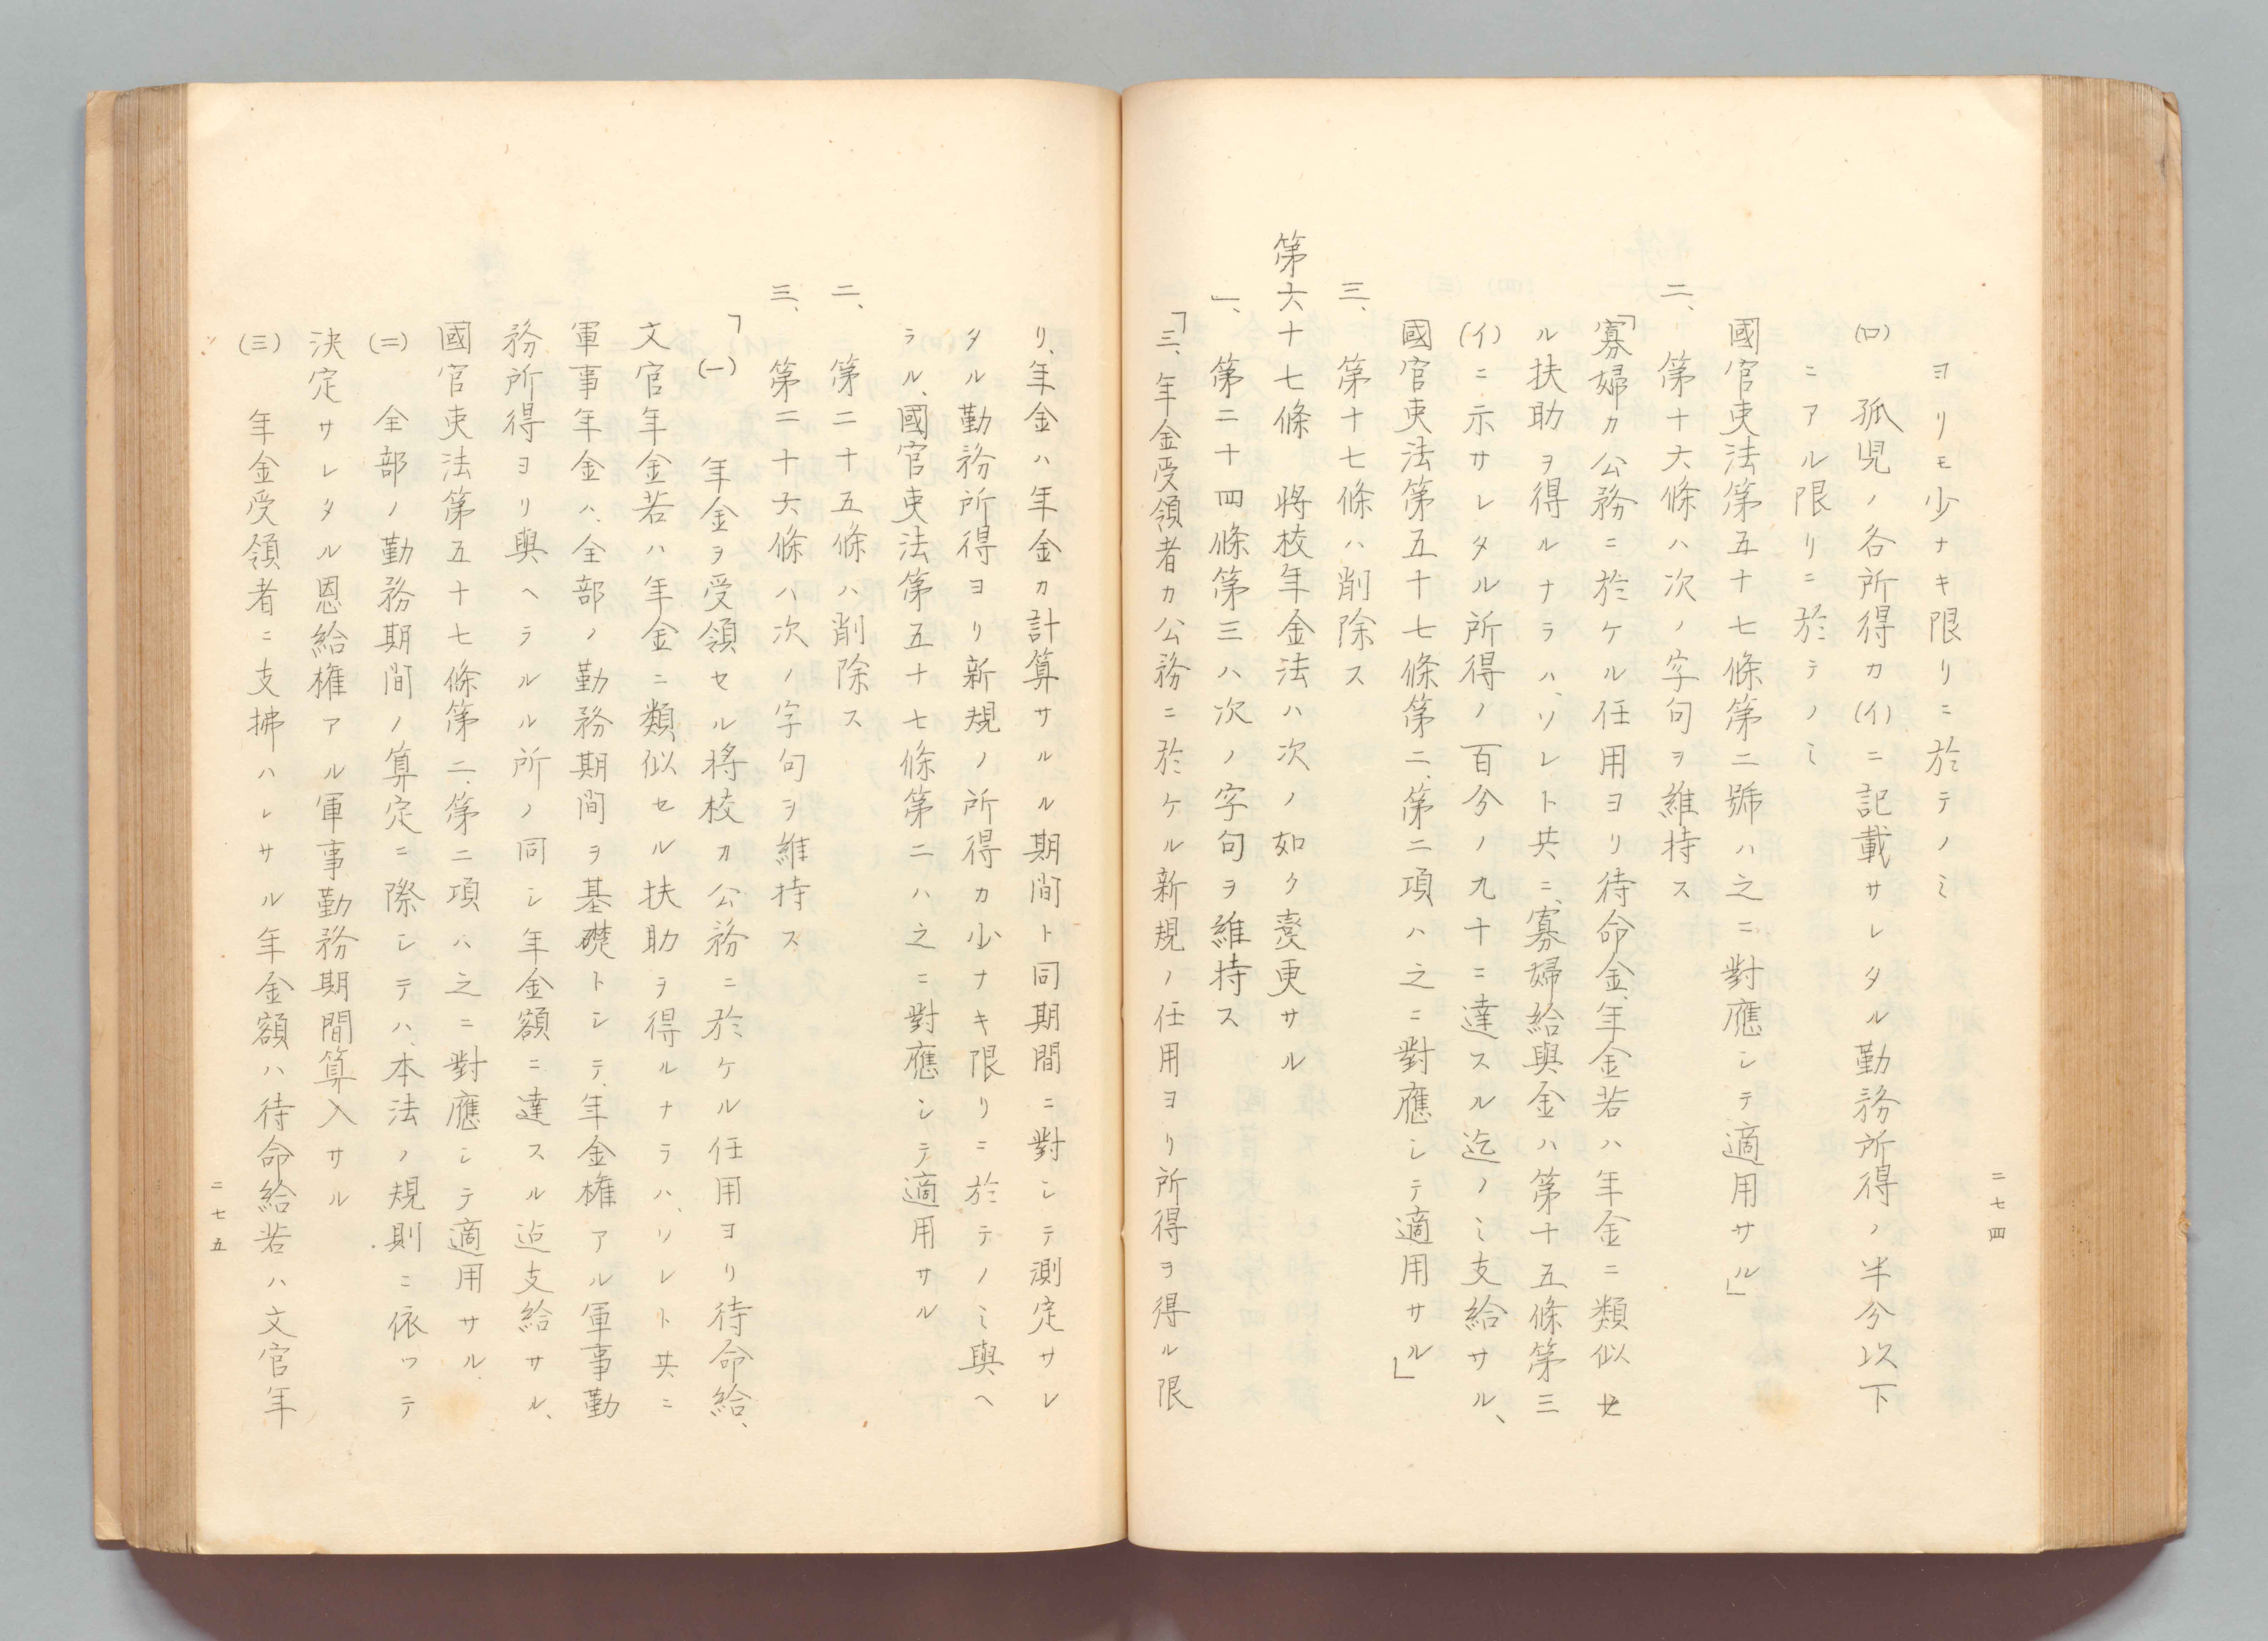 二七四
ヨリモ少ナキ限リニ於テノミ
(ロ) 孤児ノ各所得カ(イ)ニ記載サレタル勤務所得ノ半分以下
ニアル限リニ於テノミ
國官吏法第五十七條第二號ハ之ニ對應シテ適用サル」
二、第十六條ハ次ノ字句ヲ維持ス
「寡婦カ公務ニ於ケル任用ヨリ待命金、年金若ハ年金ニ類似セ
ル扶助ヲ得ルナラハ、ソレト共ニ、寡婦給與金ハ第十五條第三
(イ)ニ示サレタル所得ノ百分ノ九十ニ達スル迄ノミ支給サル、
國官吏法第五十七條第二、第二項ハ之ニ對應シテ適用サル」
三、第十七條ハ削除ス
第六十七條 將校年金法ハ次ノ如ク変更サル
一、第二十四條第三ハ次ノ字句ヲ維持ス
「三、年金受領者カ公務ニ於ケル新規ノ任用ヨリ所得ヲ得ル限
リ、年金ハ年金カ計算サルル期間ト同期間ニ對シテ測定サレ
タル勤務所得ヨリ新規ノ所得カ少ナキ限リニ於テノミ與ヘ
ラル、國官吏法第五十七條第二ハ之ニ對應シテ適用サル
二、第二十五條ハ削除ス
三、第二十六條ハ次ノ字句ヲ維持ス
「(一) 年金ヲ受領セル将校カ公務ニ於ケル任用ヨリ待命給、
文官年金若ハ年金ニ類似セル扶助ヲ得ルナラハ、ソレト共ニ
軍事年金ハ、全部ノ勤務期間ヲ基礎トシテ、年金権アル軍事勤
務所得ヨリ與ヘラルル所ノ同シ年金額ニ達スル迄支給サル、
國官吏法第五十七條第二、第二項ハ之ニ對應シテ適用サル
(二) 全部ノ勤務期間ノ算定ニ際シテハ、本法ノ規則ニ依ツテ
決定サレタル恩給権アル軍事勤務期間算入サル
(三) 年金受領者ニ支拂ハレサル年金額ハ待命給若ハ文官年
二七五